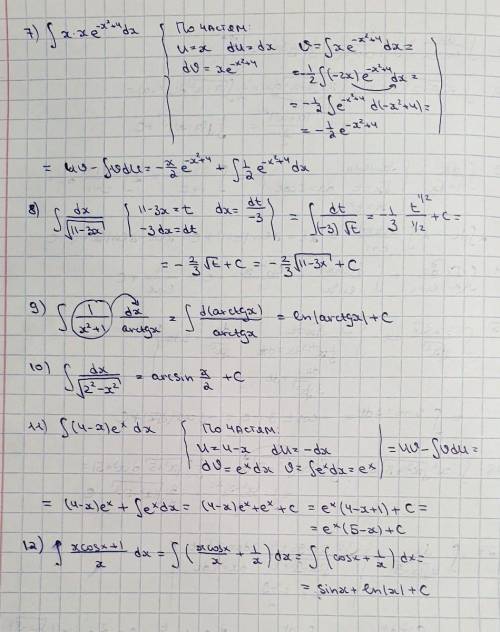 7) ∫ x · x e^(-x²+4) dx { По частям: u = x du = dx dϑ = x e^(-x²+4) ϑ = ∫ x e^(-x²+4) dx =
= -1/2 ∫ (-2x) e^(-x²+4) dx =
= -1/2 ∫ e^(-x²+4) d(-x²+4) =
= -1/2 e^(-x²+4)
= uϑ - ∫ ϑ du = -x/2 e^(-x²+4) + ∫ 1/2 e^(-x²+4) dx
8) ∫ dx/√(11-3x) { 11-3x = t dx = dt/-3 -3dx = dt } = ∫ dt/((-3)√t) = -1/3 t^(1/2)/(1/2) + C =
= -2/3 √t + C = -2/3 √(11-3x) + C
9) ∫ (1/(x²+1)) dx/arctgx = ∫ d(arctgx)/arctgx = ln|arctgx| + C
10) ∫ dx/√(2²-x²) = arcsin x/2 + C
11) ∫ (4-x)e^x dx { По частям: u = 4-x du = -dx dϑ = e^x dx ϑ = ∫ e^x dx = e^x | = uϑ - ∫ ϑ du =
= (4-x)e^x + ∫ e^x dx = (4-x)e^x + e^x + C = e^x(4-x+1) + C =
= e^x(5-x) + C
12) ∫ (xcosx+1)/x dx = ∫ (xcosx/x + 1/x) dx = ∫ (cosx + 1/x) dx =
= sinx + ln|x| + C